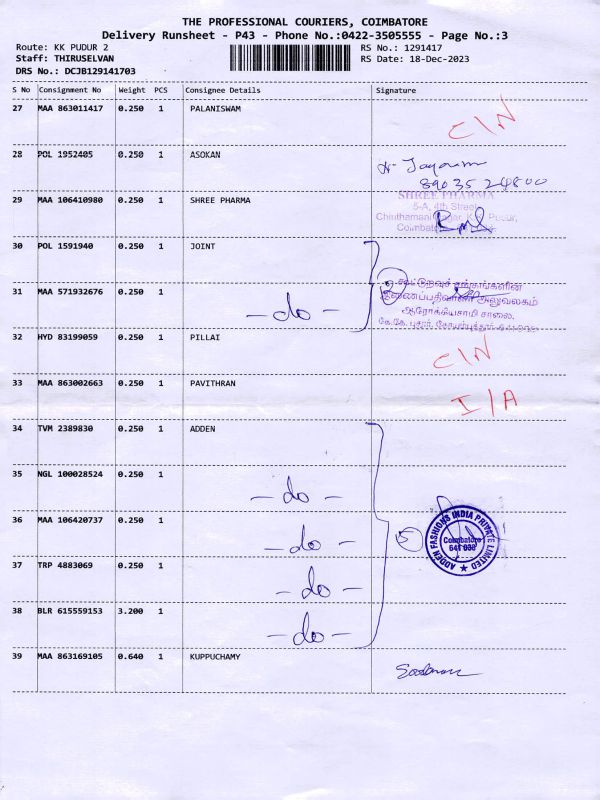 THE PROFESSIONAL COURIERS, COIMBATORE
Delivery Runsheet - P43 - Phone No.:0422-3505555 - Page No.:3
Route: KK PUDUR 2 RS No.: 1291417
Staff: THIRUSELVAN RS Date: 18-Dec-2023
DRS No.: DCJB129141703
S No Consignment No Weight PCS Consignee Details Signature
27 MAA 863011417 0.250 1 PALANISWAM C/N
28 POL 1952405 0.250 1 ASOKAN
89035 24800
29 MAA 106410980 0.250 1 SHREE PHARMA SHREE PHARMA
5-A, 4th Street
30 POL 1591940 0.250 1 JOINT
31 MAA 571932676 0.250 1 - do - 2 கூட்டுறவுச் சங்கங்களின்
இணைப்பதிவாளர் அலுவலகம்
ஆரோக்கியசாமி சாலை,
கே.கே. புதூர், கோயம்புத்தூர்
32 HYD 83199059 0.250 1 PILLAI C/N
33 MAA 863002663 0.250 1 PAVITHRAN I/A
34 TVM 2389830 0.250 1 ADDEN
35 NGL 100028524 0.250 1 - do -
36 MAA 106420737 0.250 1 - do - 5 ADDEN FASHIONS INDIA PRIVATE LIMITED
Coimbatore
641 038
37 TRP 4883069 0.250 1 - do -
38 BLR 615559153 3.200 1 - do -
39 MAA 863169105 0.640 1 KUPPUCHAMY